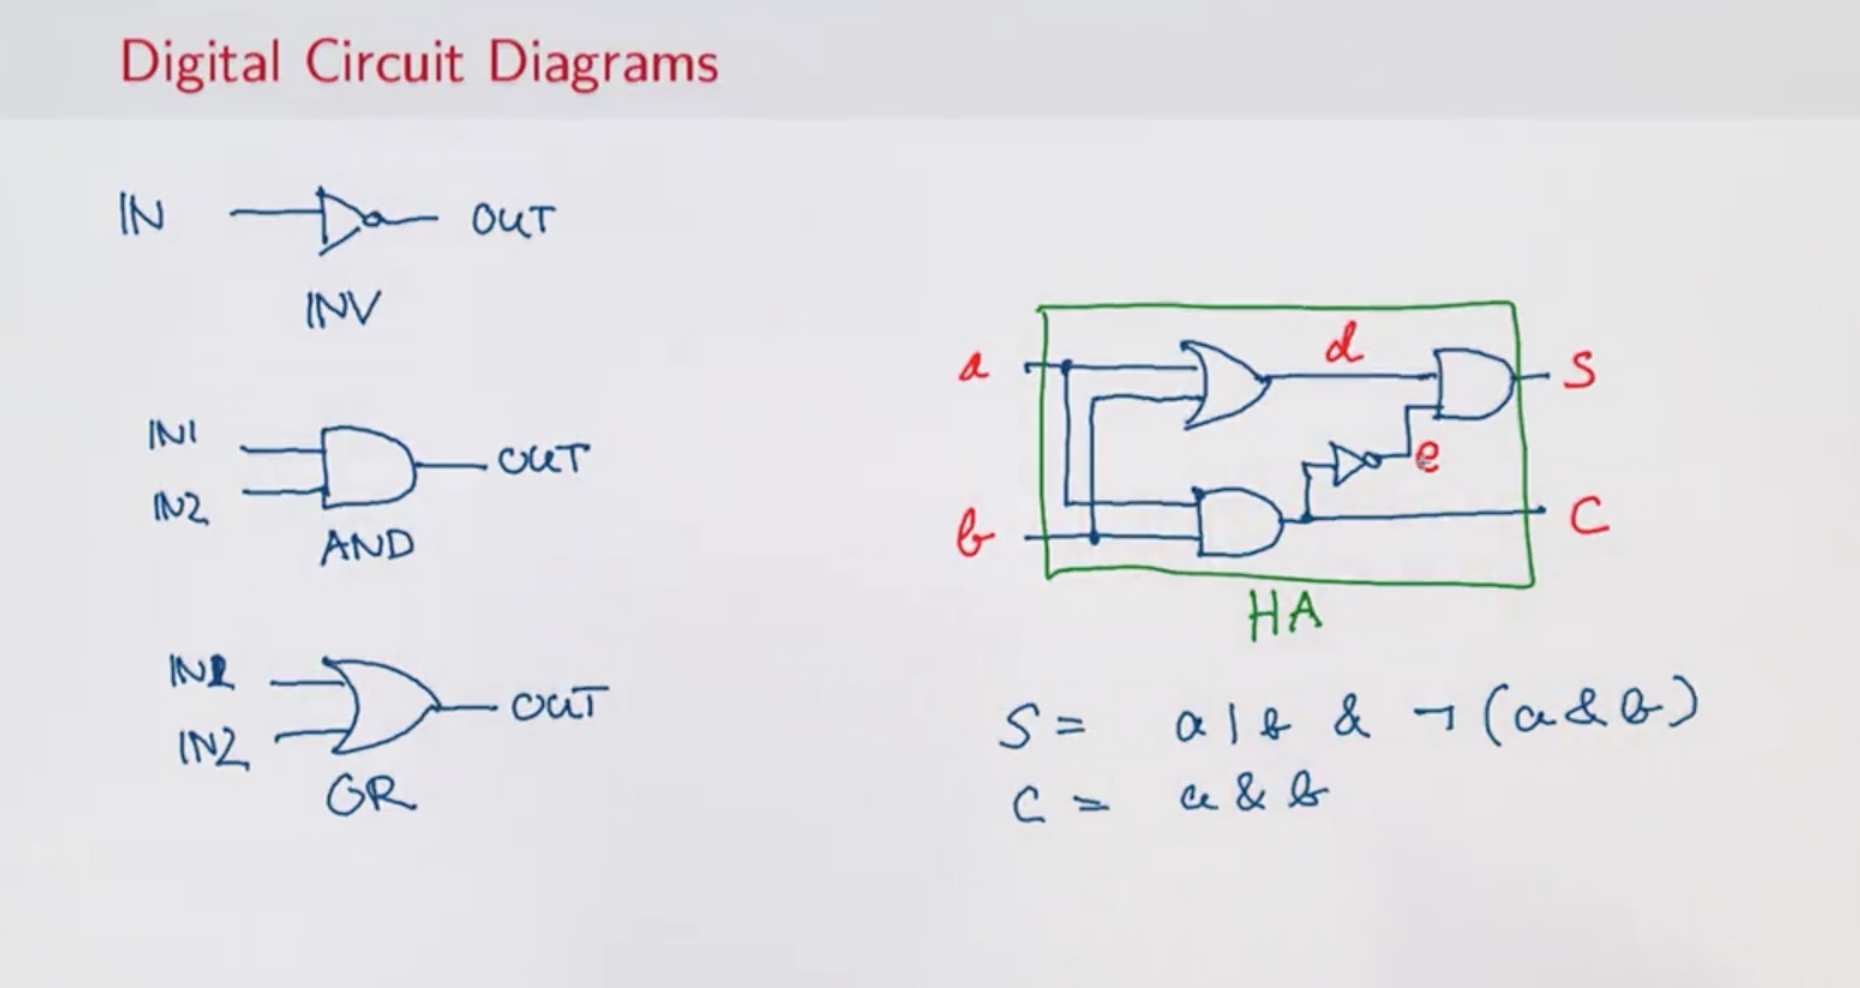 Digital Circuit Diagrams
IN OUT
INV
IN1
IN2
OUT
AND
IN1
IN2
OUT
OR
a
b
d
e
S
C
HA
S = a | b & ¬ (a & b)
C = a & b